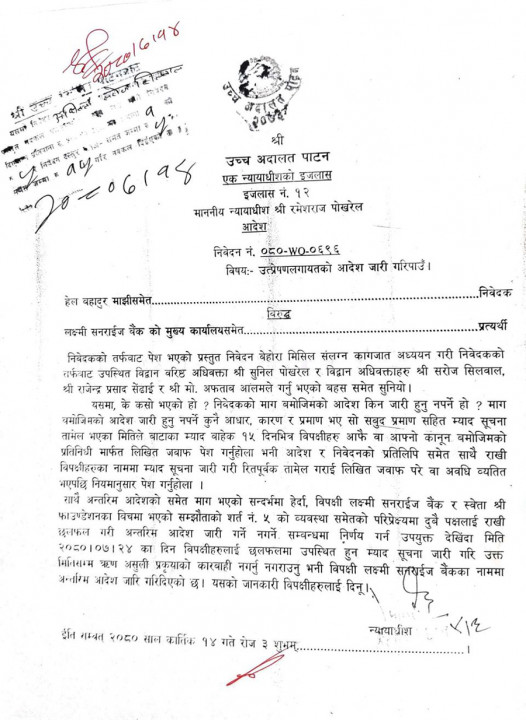 २०८०।६।१४
उच्च अदालत पाटन
श्री
उच्च अदालत पाटन
एक न्यायाधीशको इजलास
इजलास नं. १२
माननीय न्यायाधीश श्री रमेशराज पोखरेल
आदेश
निवेदन नं. ०८०-WO-०६९६
विषय:- उत्प्रेषणलगायतको आदेश जारी गरिपाउँ।
हेल बहादुर माझीसमेत.......................................................निवेदक
विरुद्ध
लक्ष्मी सनराईज बैंक को मुख्य कार्यालयसमेत.......................................................प्रत्यर्थी
निवेदकको तर्फबाट पेश भएको प्रस्तुत निवेदन बेहोरा मिसिल संलग्न कागजात अध्ययन गरी निवेदकको
तर्फबाट उपस्थित विद्वान वरिष्ठ अधिवक्ता श्री सुनिल पोखरेल र विद्वान अधिवक्ताहरु श्री सरोज सिलवाल,
श्री राजेन्द्र प्रसाद सेंढाई र श्री मो. अफताब आलमले गर्नु भएको बहस समेत सुनियो।
यसमा, के कसो भएको हो ? निवेदकको माग बमोजिमको आदेश किन जारी हुनु नपर्ने हो ? माग
बमोजिमको आदेश जारी हुनु नपर्ने कुनै आधार, कारण र प्रमाण भए सो सबुद प्रमाण सहित म्याद सूचना
तामेल भएका मितिले बाटाका म्याद बाहेक १५ दिनभित्र विपक्षीहरु आफै वा आफ्नो कानून बमोजिमको
प्रतिनिधी मार्फत लिखित जवाफ पेश गर्नुहोला भनी आदेश र निवेदनको प्रतिलिपि समेत साथै राखी
विपक्षीहरुका नाममा म्याद सूचना जारी गरी रितपूर्वक तामेल गराई लिखित जवाफ परे वा अवधि व्यतित
भएपछि नियमानुसार पेश गर्नुहोला ।
साथै अन्तरिम आदेशको समेत माग भएको सन्दर्भमा हेर्दा, विपक्षी लक्ष्मी सनराईज बैंक र स्वेता श्री
फाउण्डेशनका विचमा भएको सम्झौताको शर्त नं. ५ को व्यवस्था समेतको परिप्रेक्ष्यमा दुवै पक्षलाई राखी
छलफल गरी अन्तरिम आदेश जारी गर्ने नगर्ने. सम्बन्धमा निर्णय गर्न उपयुक्त देखिंदा मिति
२०८०।०७।२४ का दिन विपक्षीहरुलाई छलफलमा उपस्थित हुन म्याद सूचना जारी गरि उक्त
मितिसम्म ऋण असूली प्रकृयाको कारवाही नगर्नु नगराउनु भनी विपक्षी लक्ष्मी सनराईज बैंकका नाममा
अन्तरिम आदेश जारि गरिदिएको छ। यसको जानकारी विपक्षीहरुलाई दिनू।
न्यायाधीश
ईति सम्वत् २०८० साल कार्तिक १४ गते रोज ३ शुभम्.......................................................।